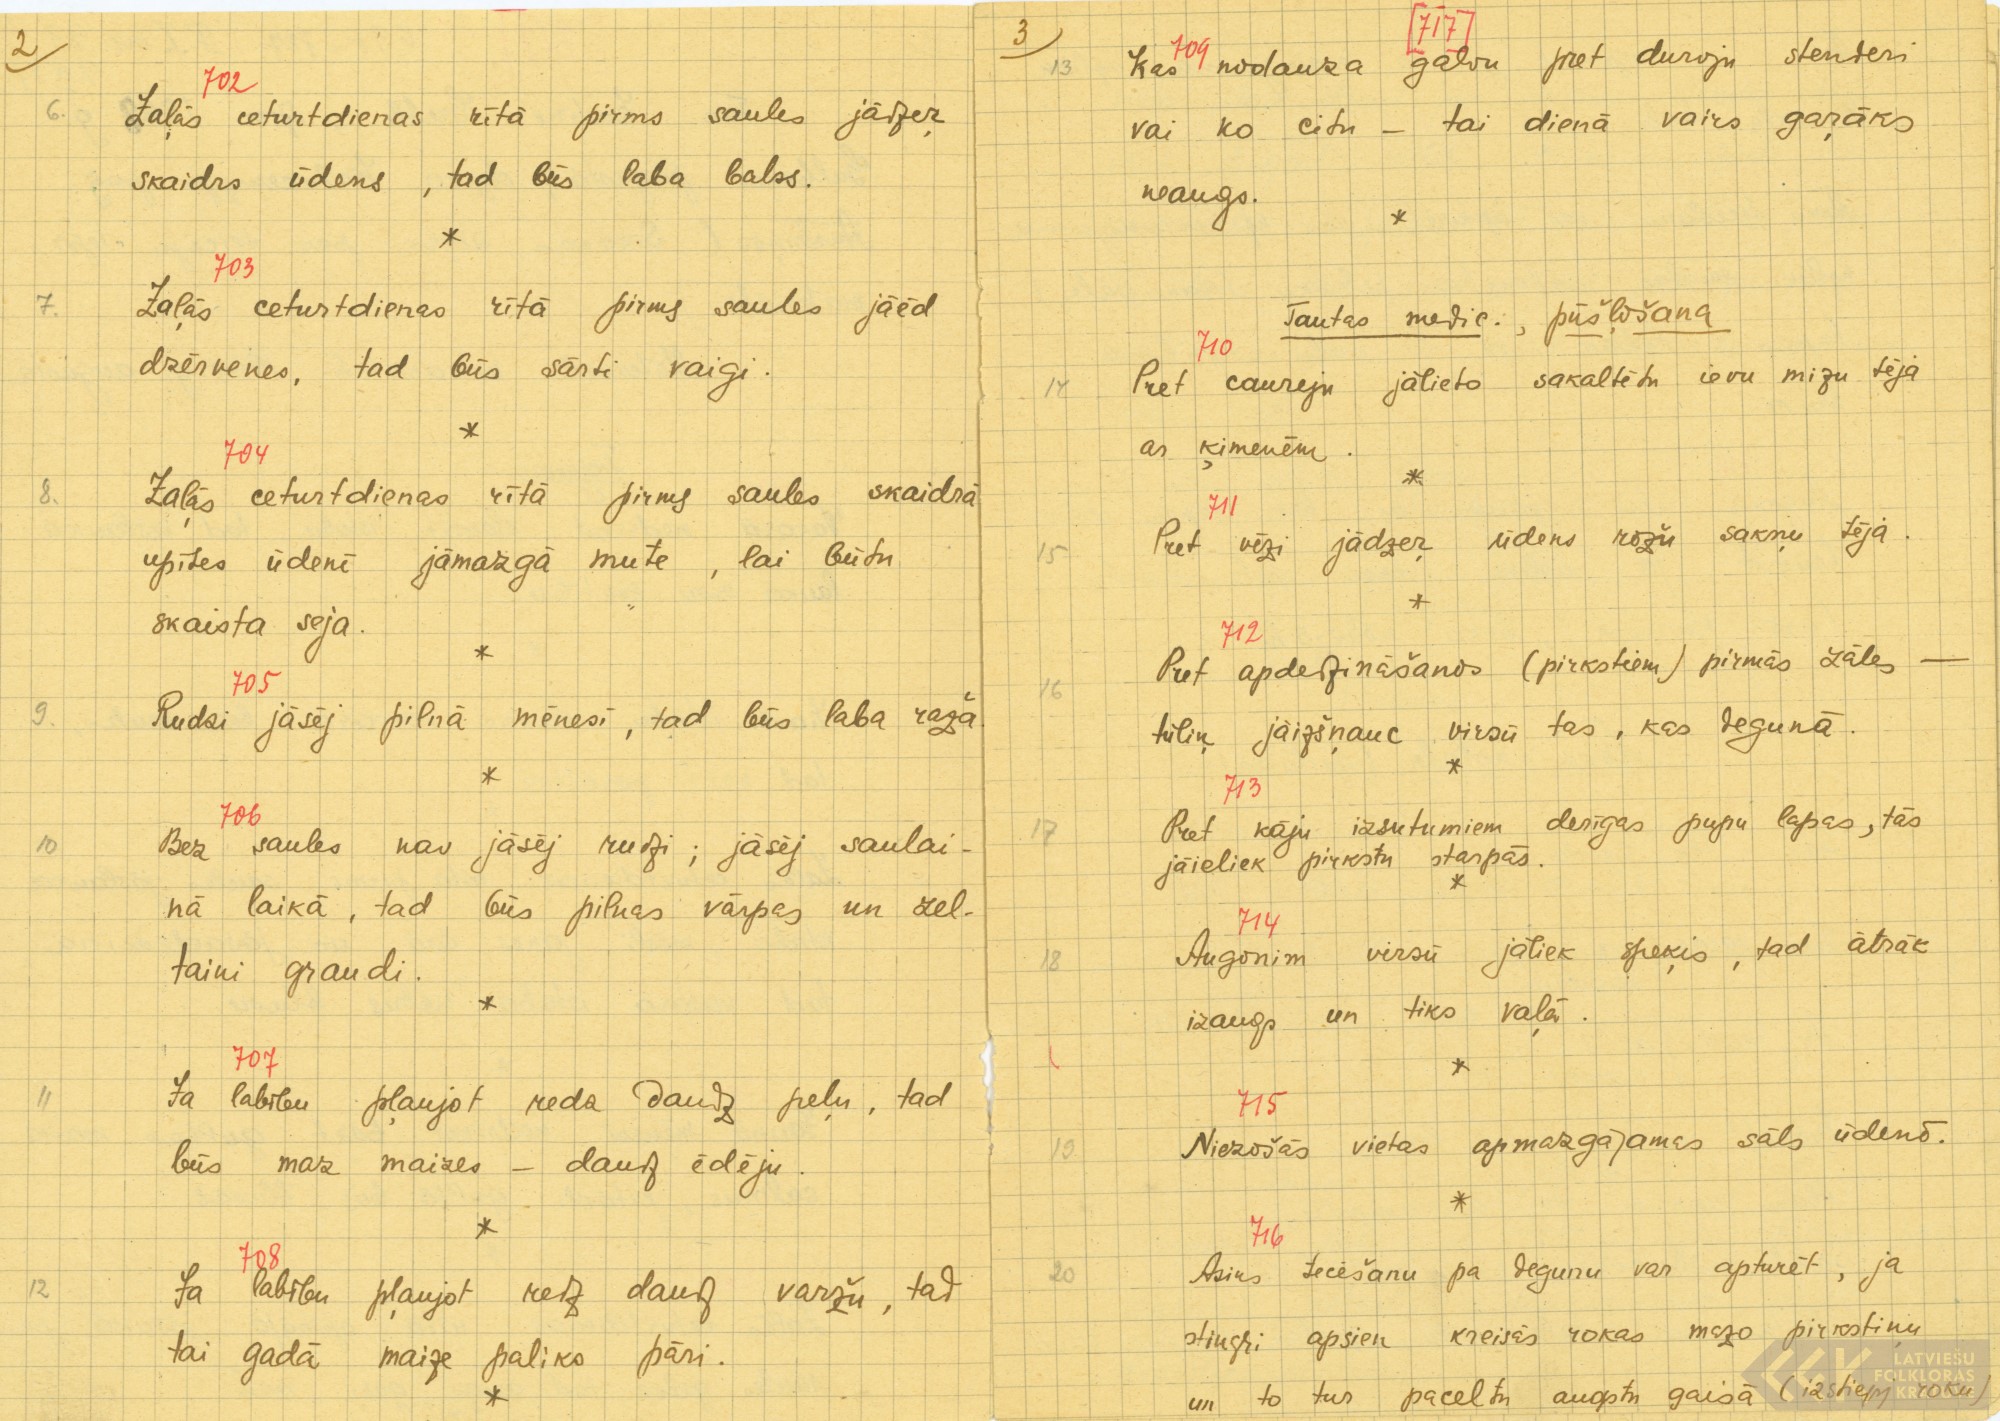 2
702
6. Zaļās ceturtdienas rītā pirms saules jādzeŗ
skaidrs ūdens, tad būs laba balss.
*
703
7. Zaļās ceturtdienas rītā pirms saules jāēd
dzērvenes, tad būs sārti vaigi.
*
704
8. Zaļās ceturtdienas rītā pirms saules skaidrā
upītes ūdenī jāmazgā mute, lai būtu
skaista seja.
*
705
9. Rudzi jāsēj pilnā mēnesī, tad būs laba raža.
*
706
10 Bez saules nav jāsēj rudzi; jāsēj saulai-
nā laikā, tad būs pilnas vārpas un zel-
taini graudi.
*
707
11 Ja labību pļaujot redz daudz peļu, tad
būs maz maizes – daudz ēdēju.
*
708
12 Ja labību pļaujot redz daudz varžu, tad
tai gadā maize paliks pāri.
*
3
709 [717]
13 Kas nodauza galvu pret duroju stenderi
vai ko citu – tai dienā vairs gaŗāks
neaugs.
*
Tautas medic., pūšļošana
710
14 Pret caureju jālieto sakaltētu ievu mizu tēja
ar ķimenēm.
*
711
15 Pret vēzi jādzeŗ ūdens rožu sakņu tēja.
*
712
16 Pret apdedzināšanos (pirkstiem) pirmās zāles —
tūliņ jāizšņauc virsū tas, kas degunā.
*
713
17 Pret kāju izsutumiem derīgas pupu lapas, tās
jāieliek pirkstu starpās.
*
714
18 Augonim virsū jāliek speķis, tad ātrāk
izaugs un tiks vaļā.
*
715
19 Niezošās vietas apmazgājamas sāls ūdenī.
*
716
20 Asins tecēšanu pa degunu var apturēt, ja
stingri apsien kreisās rokas mazo pirkstiņu
un to tur paceltu augstu gaisā (izstiepj roku)
LATVIEŠU
FOLKLORAS